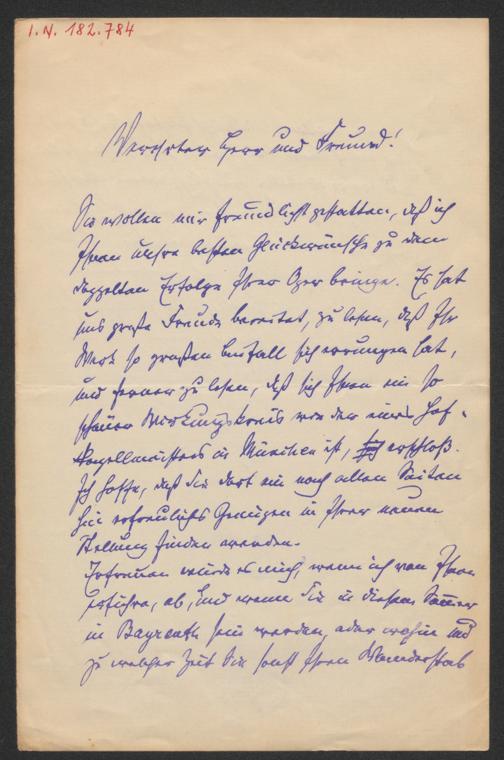 I.N. 182.784
Verehrter Herr und Freund!
Sie wollen mir freundlichst gestatten, daß ich
Ihnen unsre besten Glückwünsche zu dem
doppelten Erfolge Ihrer Oper bringe. Es hat
uns große Freude bereitet, zu lesen, daß Ihr
Werk so großen Beifall sich errungen hat,
und ferner zu lesen, daß sich Ihnen ein so
schöner Wirkungskreis wie der eines Hof-
kapellmeisters in München ist, erschloß.
Ich hoffe, daß Sie dort ein nach allen Seiten
hin erfreuliches Genügen in Ihrer neuen
Stellung finden werden.
Erfreuen würde es mich, wenn ich von Ihnen
erführe, ob, und wenn Sie in diesem Sommer
in Bayreuth sein werden, oder wohin und
zu welcher Zeit Sie sonst Ihren Wanderstab